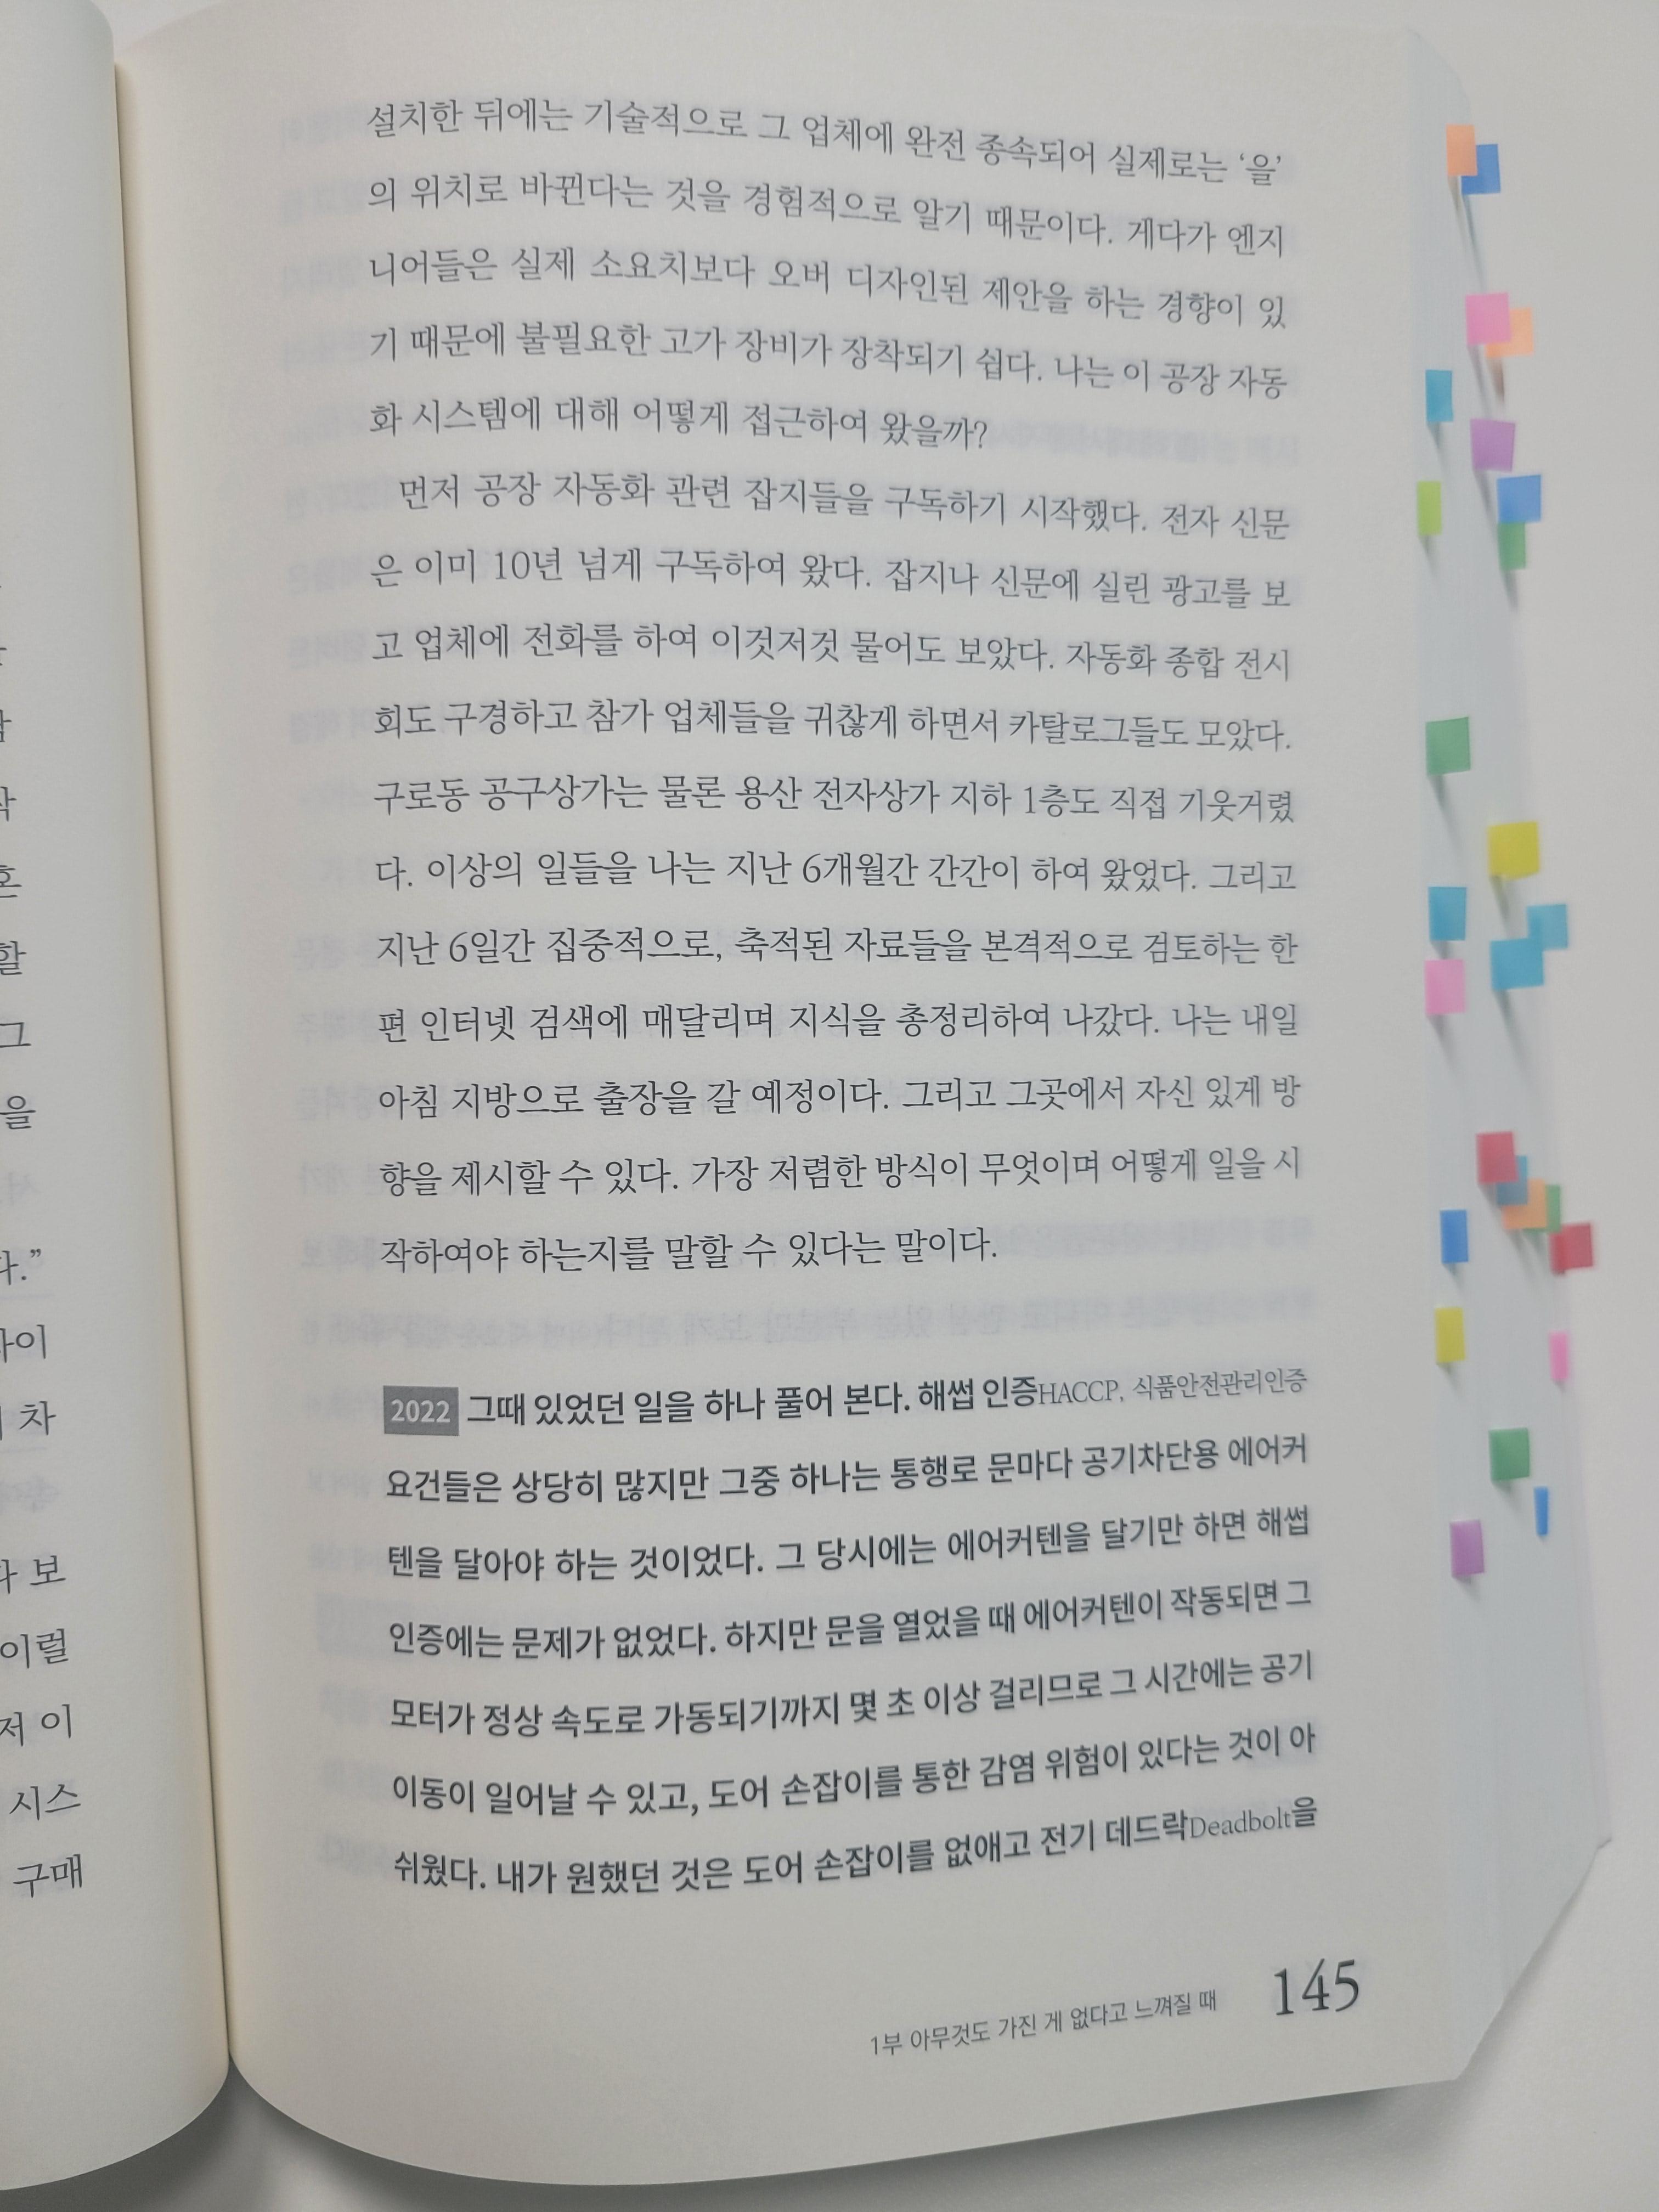 설치한 뒤에는 기술적으로 그 업체에 완전 종속되어 실제로는 ‘을’
의 위치로 바뀐다는 것을 경험적으로 알기 때문이다. 게다가 엔지
니어들은 실제 소요치보다 오버 디자인된 제안을 하는 경향이 있
기 때문에 불필요한 고가 장비가 장착되기 쉽다. 나는 이 공장 자동
화 시스템에 대해 어떻게 접근하여 왔을까?
먼저 공장 자동화 관련 잡지들을 구독하기 시작했다. 전자 신문
은 이미 10년 넘게 구독하여 왔다. 잡지나 신문에 실린 광고를 보
고 업체에 전화를 하여 이것저것 물어도 보았다. 자동화 종합 전시
회도 구경하고 참가 업체들을 귀찮게 하면서 카탈로그들도 모았다.
구로동 공구상가는 물론 용산 전자상가 지하 1층도 직접 기웃거렸
다. 이상의 일들을 나는 지난 6개월간 간간이 하여 왔었다. 그리고
지난 6일간 집중적으로, 축적된 자료들을 본격적으로 검토하는 한
편 인터넷 검색에 매달리며 지식을 총정리하여 나갔다. 나는 내일
아침 지방으로 출장을 갈 예정이다. 그리고 그곳에서 자신 있게 방
향을 제시할 수 있다. 가장 저렴한 방식이 무엇이며 어떻게 일을 시
작하여야 하는지를 말할 수 있다는 말이다.
2022 그때 있었던 일을 하나 풀어 본다. 해썹 인증HACCP, 식품안전관리인증
요건들은 상당히 많지만 그중 하나는 통행로 문마다 공기차단용 에어커
텐을 달아야 하는 것이었다. 그 당시에는 에어커텐을 달기만 하면 해썹
인증에는 문제가 없었다. 하지만 문을 열었을 때 에어커텐이 작동되면 그
모터가 정상 속도로 가동되기까지 몇 초 이상 걸리므로 그 시간에는 공기
이동이 일어날 수 있고, 도어 손잡이를 통한 감염 위험이 있다는 것이 아
쉬웠다. 내가 원했던 것은 도어 손잡이를 없애고 전기 데드락Deadbolt을
1부 아무것도 가진 게 없다고 느껴질 때 145
할
그
을
다.”
차
보
이럴
이
시스
구매